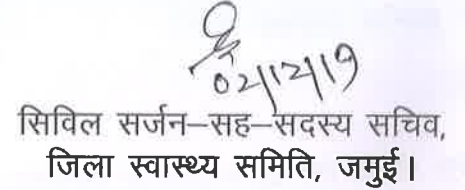 02/12/19
सिविल सर्जन–सह–सदस्य सचिव,
जिला स्वास्थ्य समिति, जमुई।